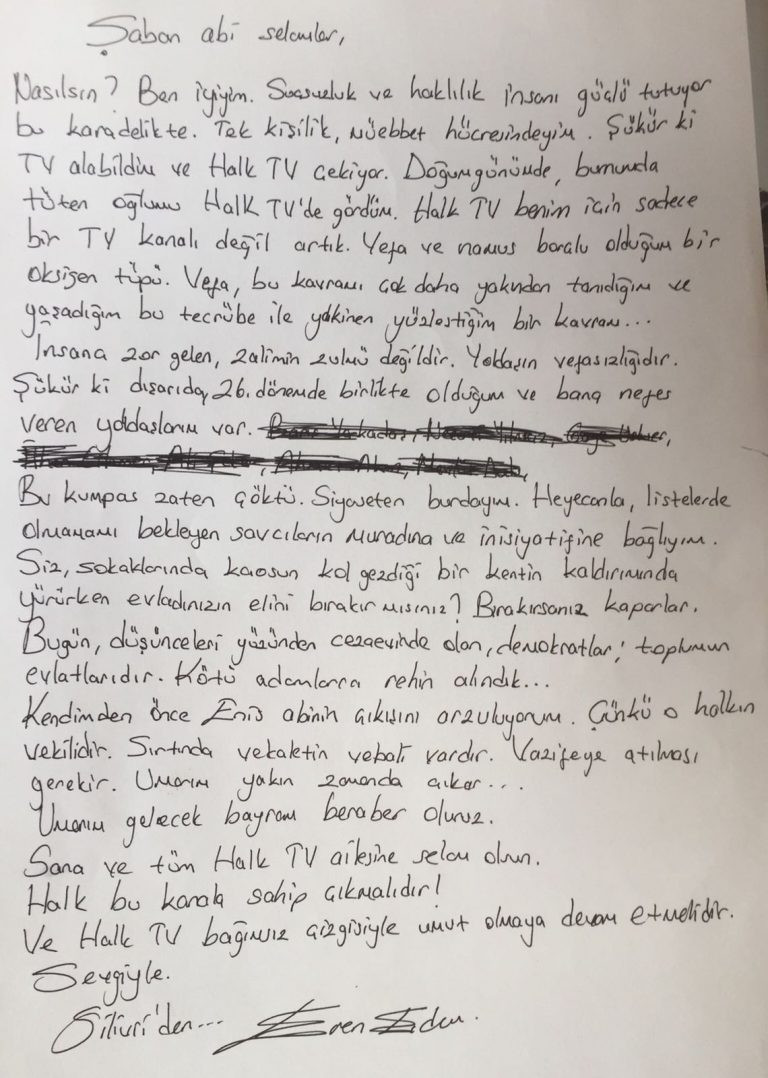 Şaban abi selamlar,
Nasılsın? Ben iyiyim. Suçsuzluk ve haklılık insanı güçlü tutuyor
bu karadelikte. Tek kişilik, müebbet hücresindeyim. Şükür ki
TV alabildim ve Halk TV çekiyor. Doğumgünümde, burnumda
tüten oğlumu Halk TV'de gördüm. Halk TV benim için sadece
bir TV kanalı değil artık. Vefa ve namus borçlu olduğum bir
oksijen tüpü. Vefa, bu kavramı çok daha yakından tanıdığım ve
yaşadığım bu tecrübe ile yakinen yüzleştiğim bir kavram...
İnsana zor gelen, zalimin zulmü değildir. Yoldaşın vefasızlığıdır.
Şükür ki dışarıda, 26. dönemde birlikte olduğum ve bana nefes
veren yoldaşlarım var.
Bu kumpas zaten çöktü. Siyaseten burdayım. Heyecanla, listelerde
olmamamı bekleyen savcıların muradına ve inisiyatifine bağlıyım.
Siz, sokaklarında kaosun kol gezdiği bir kentin kaldırımında
yürürken evladınızın elini bırakır mısınız? Bırakırsanız kaparlar.
Bugün, düşünceleri yüzünden cezaevinde olan, demokratlar; toplumun
evlatlarıdır. Kötü adamlarca rehin alındık...
Kendimden önce Enis abinin çıkışını arzuluyorum. Çünkü o halkın
vekilidir. Sırtında vekaletin vebali vardır. Vazifeye atılması
gerekir. Umarım yakın zamanda çıkar...
Umarım gelecek bayram beraber oluruz.
Sana ve tüm Halk TV ailesine selam olsun.
Halk bu kanala sahip çıkmalıdır!
Ve Halk TV bağımsız çizgisiyle umut olmaya devam etmelidir.
Sevgiyle.
Silivri'den... Eren Erdem.